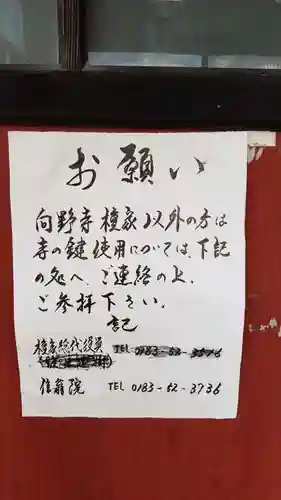 お願い
向野寺檀家以外の方は
寺の鍵使用については、下記
の処へ、ご連絡の上、
ご参拝下さい。
記
檀家総代役員 TEL 0183-52-3576
信翁院 TEL 0183-52-3736